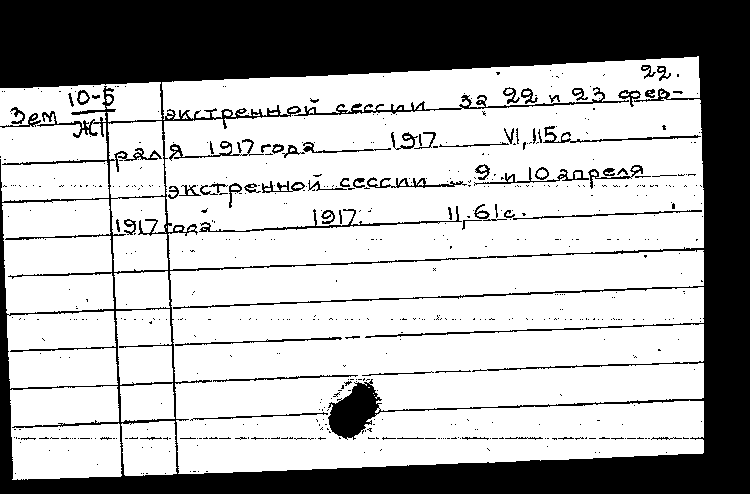 22.
Зем 10-5 экстренной сессии за 22 и 23 фев-
Ж1
раля 1917 года 1917 VI, 115 с.
экстренной сессии 9 и 10 апреля
1917 года 1917. II, 61 с.